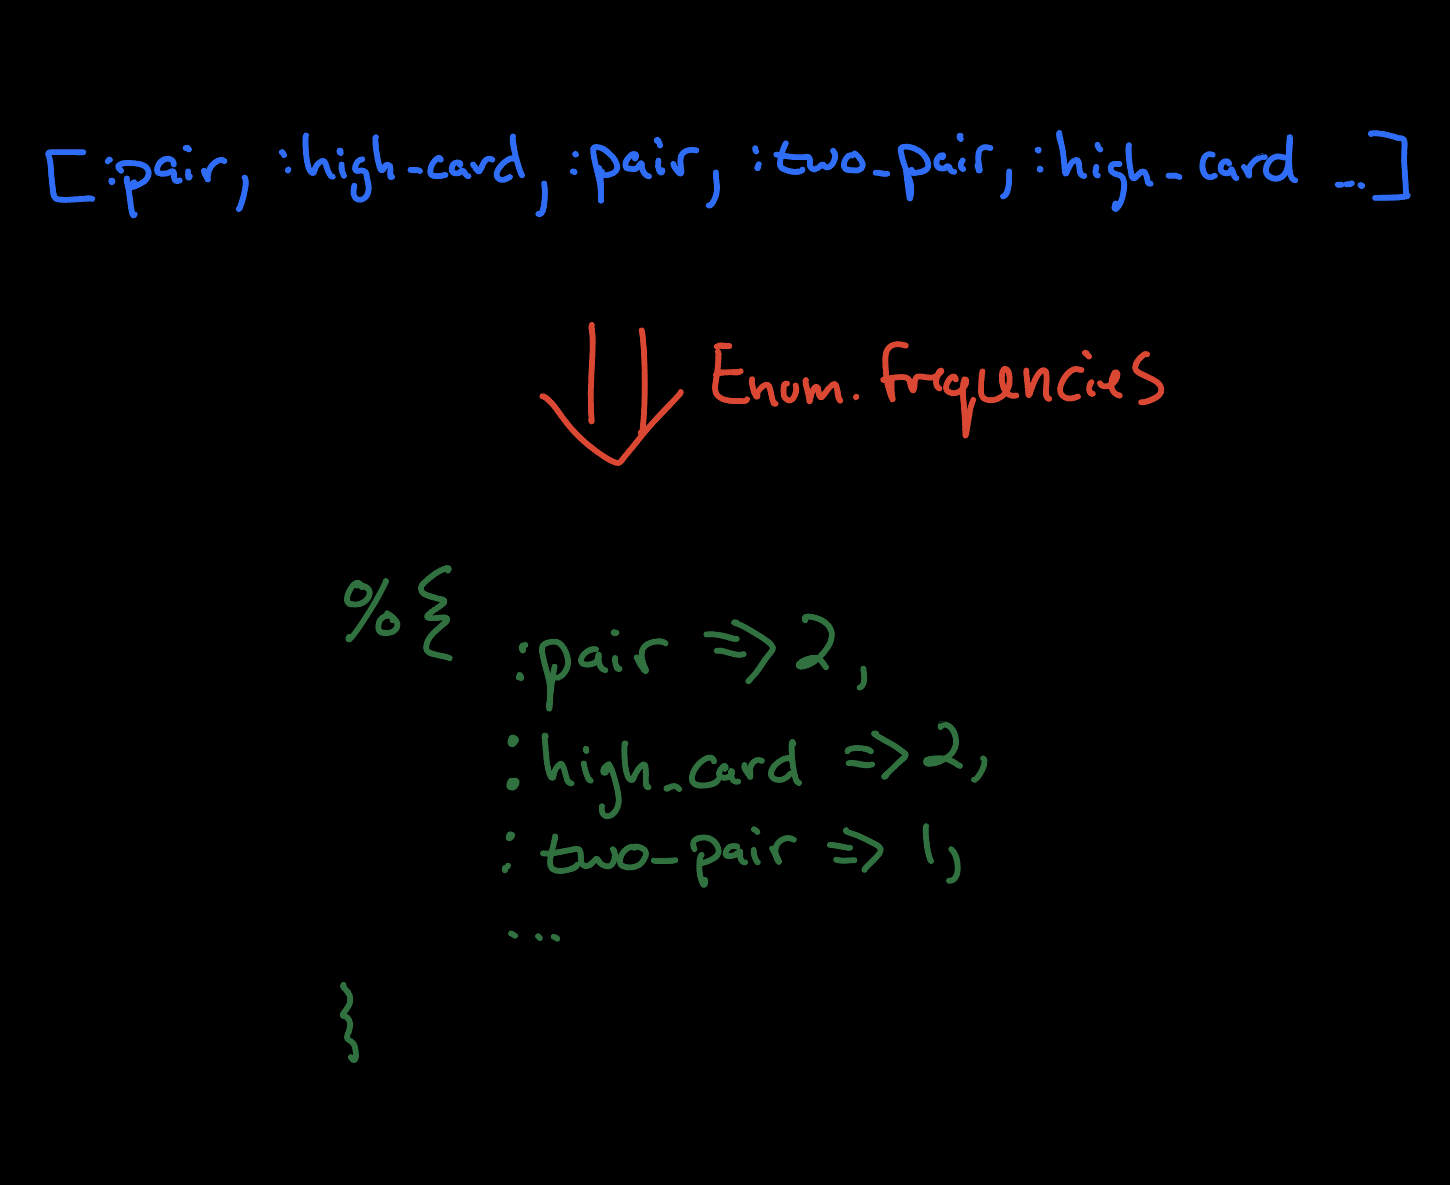 [:pair, :high_card, :pair, :two_pair, :high_card ...]
Enum.frequencies
%{
:pair => 2,
:high_card => 2,
:two_pair => 1,
...
}